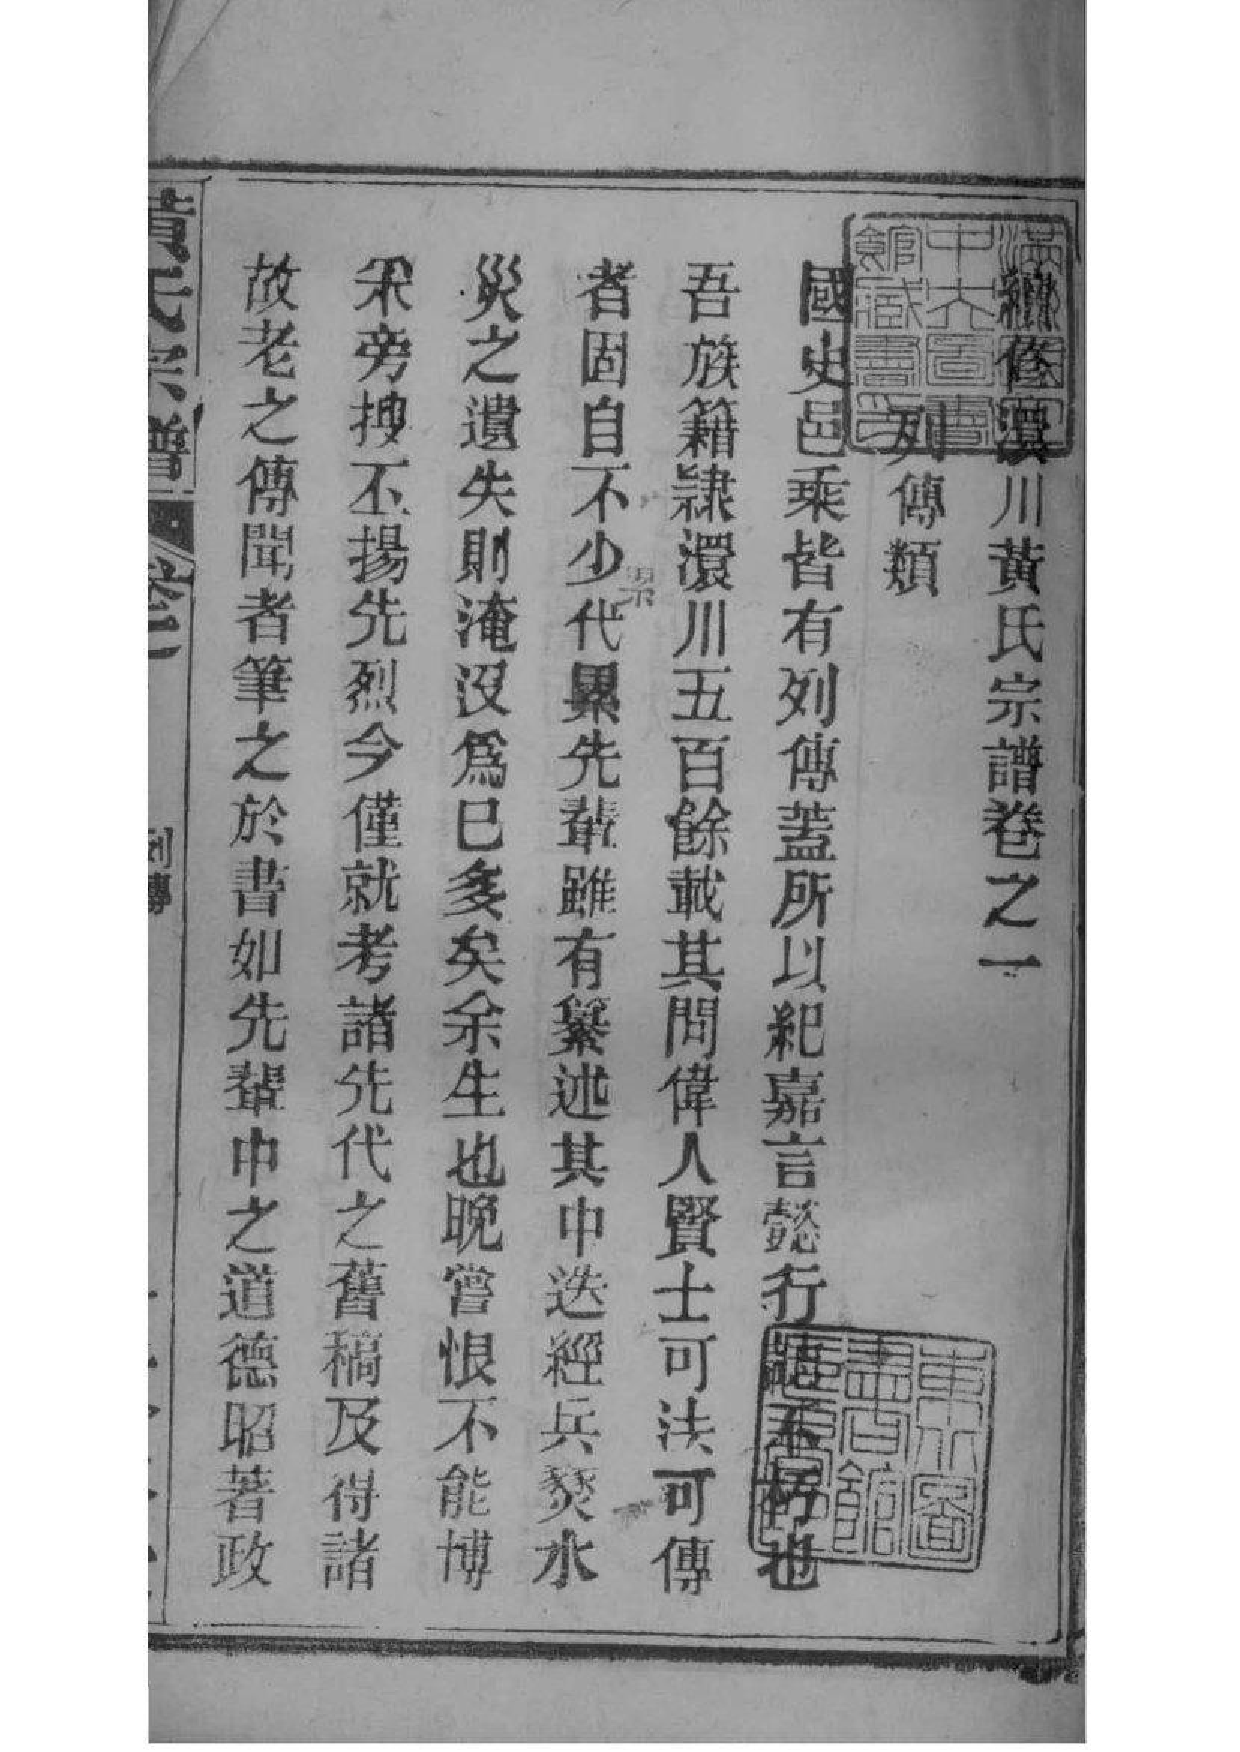 續修澴川黃氏宗譜卷之一
列傳類
國史邑乘皆有列傳蓋所以紀嘉言懿行誌不朽也
吾族籍隸澴川五百餘載其間偉人賢士可法可傳
者固自不少代累先輩雖有纂述其中迭經兵燹水
災之遺失則淹沒爲已多矣余生也晚嘗恨不能博
采旁搜丕揚先烈今僅就考諸先代之舊稿及得諸
故老之傳聞者筆之於書如先輩中之道德昭著政
黃氏宗譜
卷一
列傳